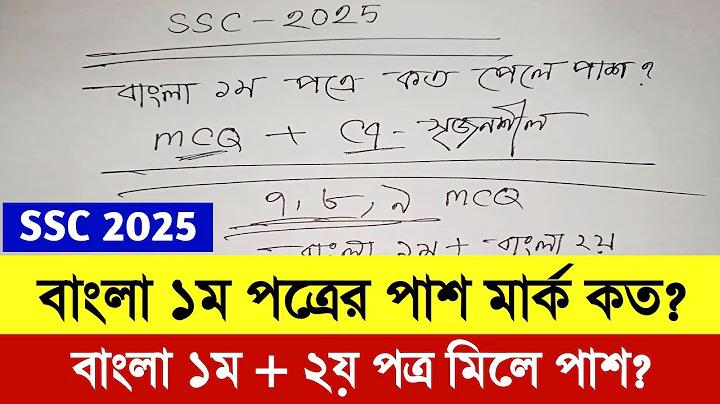 SSC - 2025
বাংলা ১ম পত্রে কত পেলে পাশ?
MCQ + CQ - সৃজনশীল
৭, ৮, ৯ MCQ
বাংলা ১ম + বাংলা ২য়
SSC 2025
বাংলা ১ম পত্রের পাশ মার্ক কত?
বাংলা ১ম + ২য় পত্র মিলে পাশ?